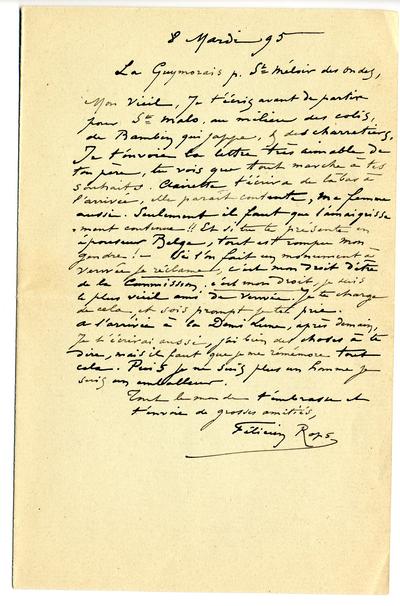 8 Mardi 95
La Guymorais p. St Méloir des ondes,
Mon vieil, Je t'écris avant de partir
pour St Malo, au milieu des colis,
de Bambin qui jappe, & des charretiers,
Je t'envoie la lettre très aimable de
ton père, tu vois que tout marche à tes
souhaits. Clairette t'écrira de là bas à
l'arrivée, elle parait contente, ma femme
aussi. Seulement il faut que l'amaigrisse
-ment continue!! Et si tu te présente en
épouseur Belge, tout est rompu mon
gendre! — Si l'on fait un monument à
Verwée je réclame, c'est mon droit d'être
de la Commission, c'est mon droit, je suis
le plus vieil ami de Verwée. Je te charge
de cela et sois prompt je te prie.
A l'arrivée à la Demi Lune, après demain,
Je t'écrirai aussi, j'ai bien des choses à te
dire, mais il faut que je me remémore tout
cela. Puis je ne suis plus un homme je
suis un emballeur.
Tout le monde t'embrasse et
t'envoie de grosses amitiés,
Félicien Rops